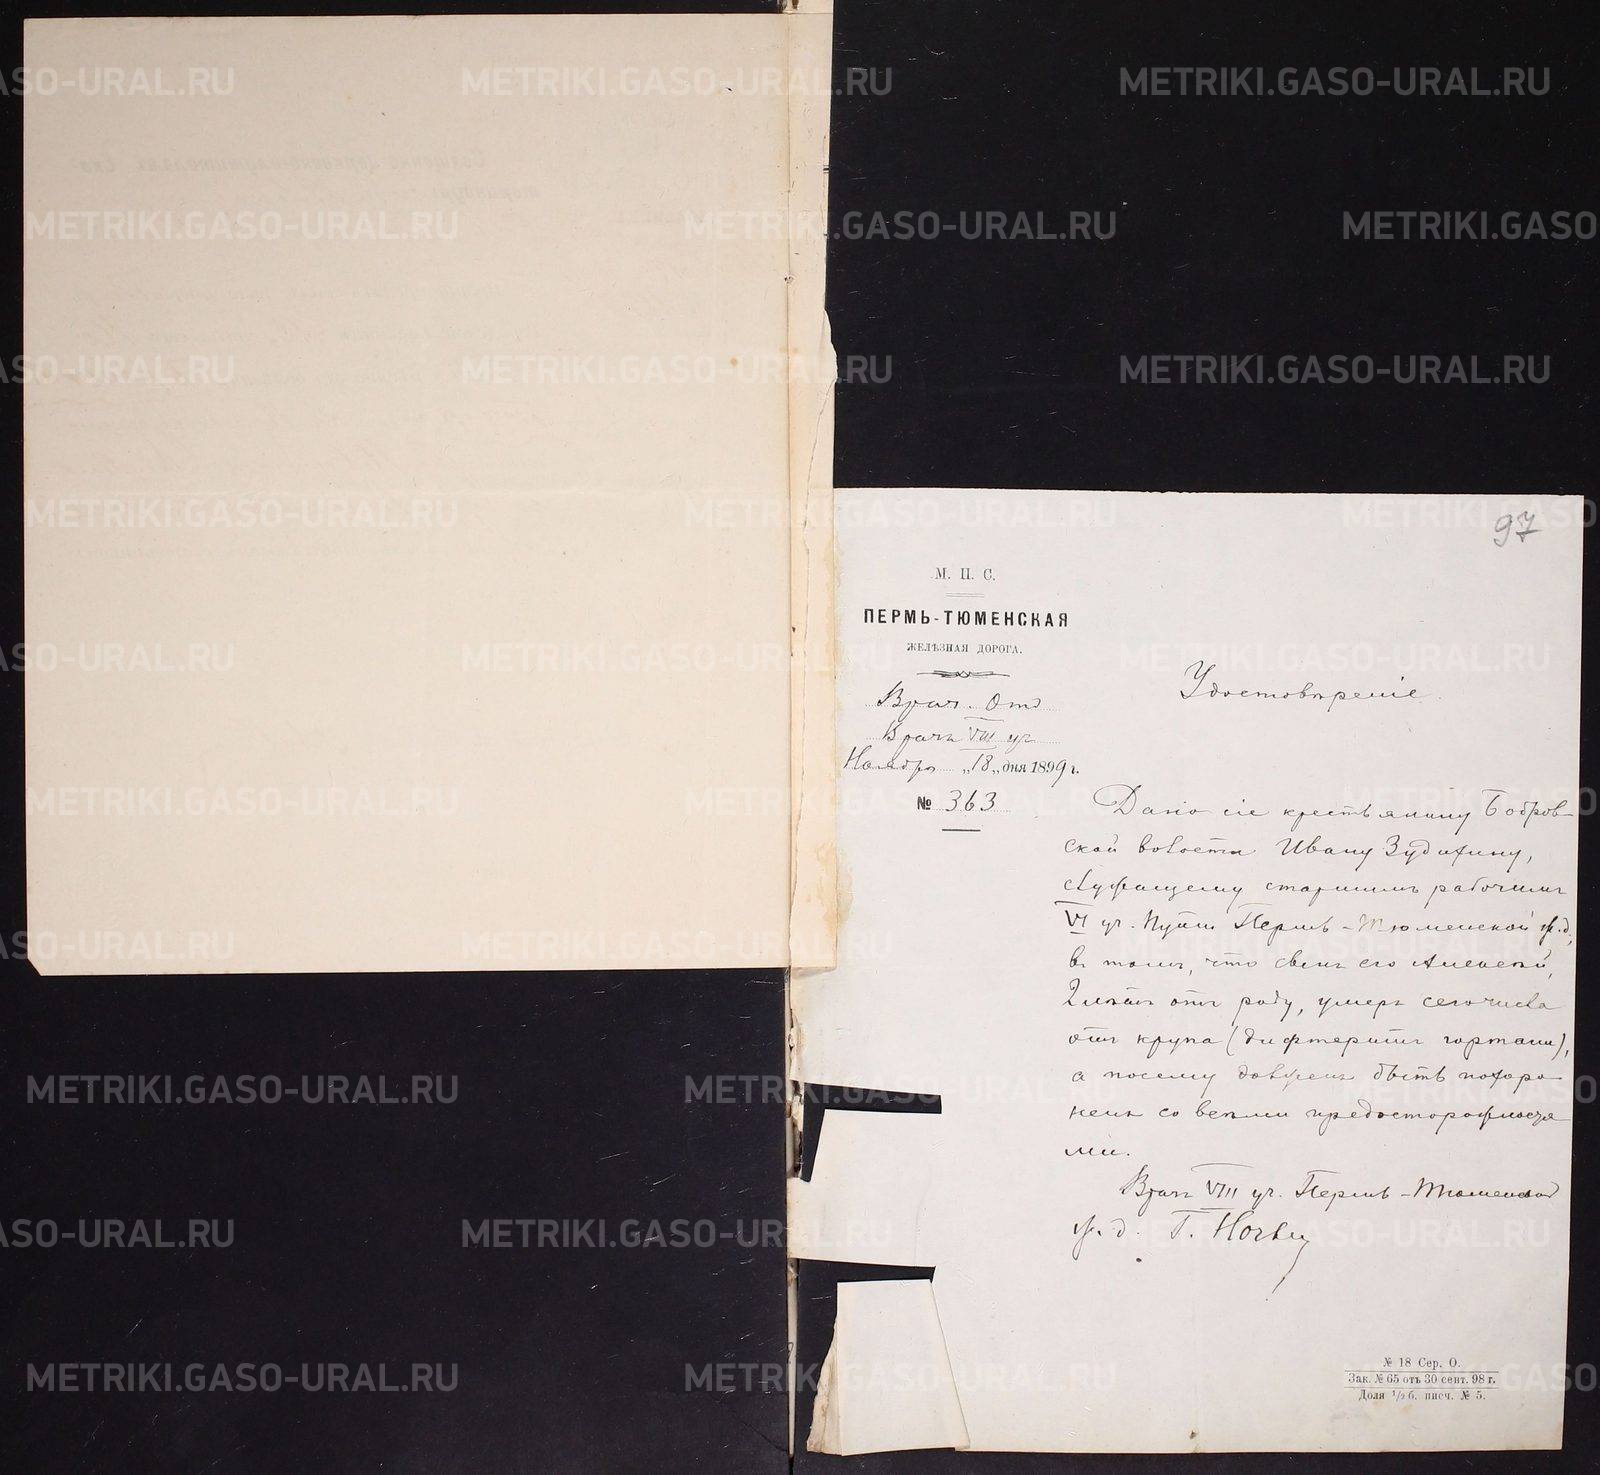 97
М. П. С.
ПЕРМЬ-ТЮМЕНСКАЯ
ЖЕЛѢЗНАЯ ДОРОГА.
Врач. Отд
Врачъ VIII уч
Ноября „18„ дня 1899 г.
№ 363
Удостовѣреніе.
Дано сіе крестьянину Бобров-
ской волости Ивану Зудихину,
служащему старшимъ рабочимъ
VI уч. Пути Пермь-Тюменской ж.д.,
въ томъ, что сынъ его Алексѣй,
2 лѣтъ отъ роду, умеръ сего числа
отъ крупа (дифтеритъ гортани),
а посему долженъ быть похоро-
ненъ со всѣми предосторожностя
ми.
Врачъ VIII уч. Пермь-Тюменской
ж.д. Г.
№ 18 Сер. О.
Зак. № 65 отъ 30 сент. 98 г.
Доля 1/2 б. писч. № 5.
METRIKI.GASO-URAL.RU